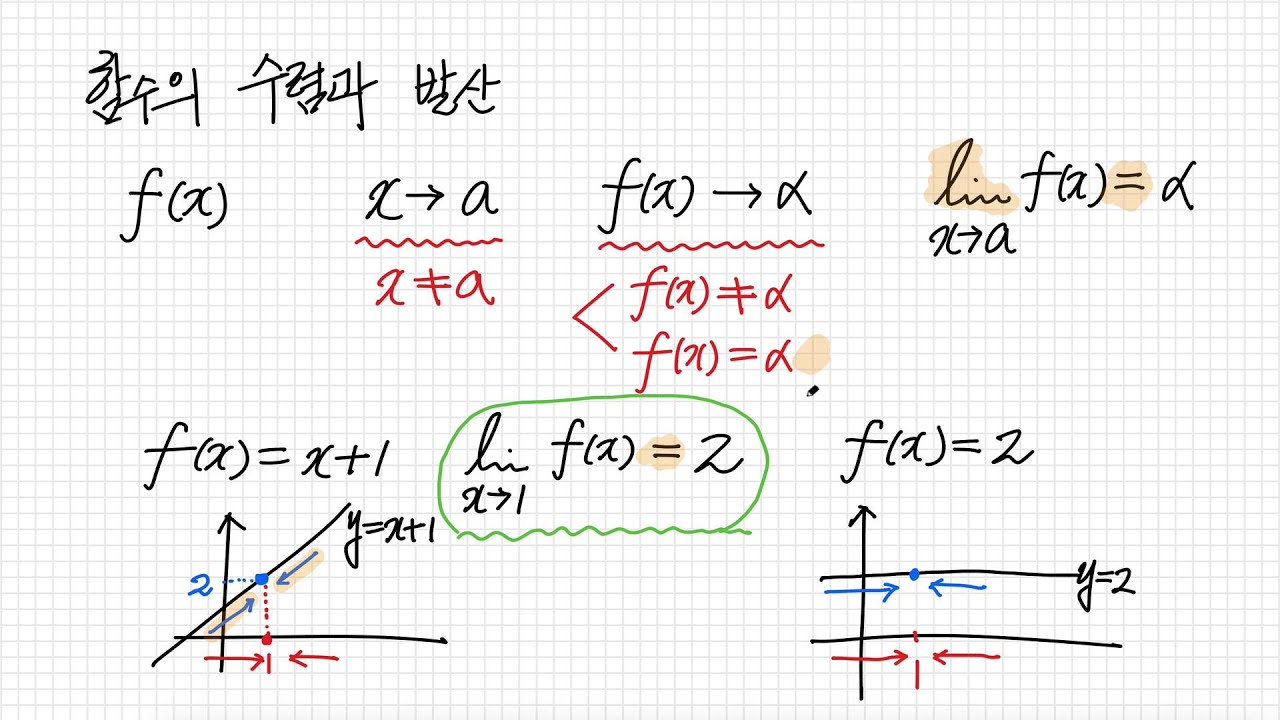 함수의 수렴과 발산
f(x) x→a f(x)→α lim f(x)=α
x→a
x≠a f(x)≠α
f(x)=α
f(x)=x+1 lim f(x)=2 f(x)=2
x→1
y=x+1
2
y=2
1 1